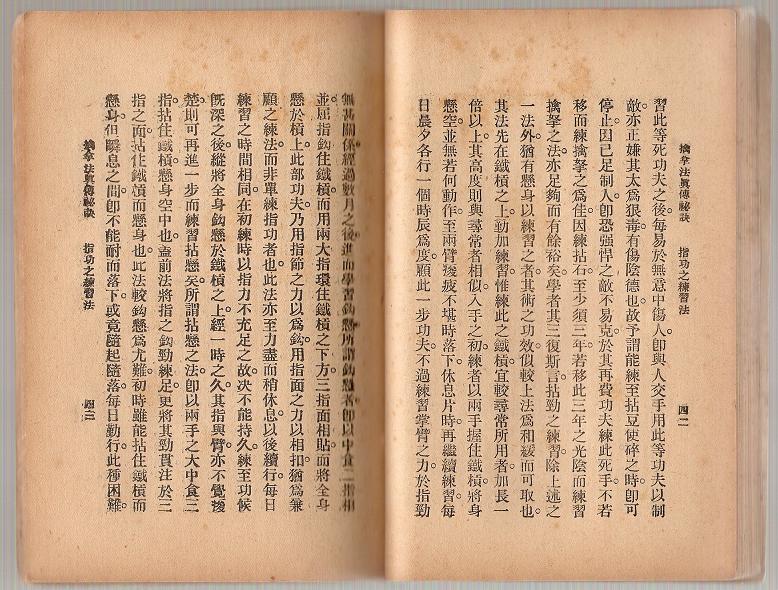 擒拿法眞傳祕訣 指功之練習法 四二
習此等死功夫之後。每易於無意中傷人。卽與人交手。用此等功夫以制
敵。亦正嫌其太爲狠毒。有傷陰德也。故予謂能練至拈豆使碎之時。卽可
停止。因已足制人。卽恐强悍之敵。不易克。於其再費功夫練此死手。不若
移而練擒拏之爲佳。因練拈石。至少須三年。若移此三年之光陰。而練習
擒拏之法。亦足夠而有餘裕矣。學者其三復斯言。拈勁之練習。除上述之
一法外。猶有懸身以練習之者。其術之功效。似較上法爲和緩而可取也。
其法先在鐵槓之上。勤加練習。惟練此之鐵槓。宜較尋常所用者。加長一
倍以上。其高度則與尋常者相似。入手之初。練者以兩手握住鐵槓。將身
懸空。並無若何動作。至兩臂痠疲不堪時落下。休息片時。再繼續練習。每
日晨夕各行一個時辰爲度。顧此一步功夫。不過練習掌臂之力。於指勁
無甚關係。經過數月之後。進而學習鈎懸。所謂鈎懸者。卽以中食二指相
並。屈指鈎住鐵槓。而用兩大指環住鐵槓之下方。三指面相貼。而將全身
懸於槓上。此部功夫。乃用指節之力以爲鈎。用指面之力以相扣。猶爲兼
顧之練法。而非單練指功者也。此法亦至力盡而稍休息。以後續行。每日
練習之時間相同。在初練時。以指力不充足之故。決不能持久。練至功候
旣深之後。縱將全身鈎懸於鐵槓之上。經一時之久。其指與臂。亦不覺痠
楚。則可再進一步而練習拈懸矣。所謂拈懸之法。卽以兩手之大中食三
指。拈住鐵槓懸身空中也。蓋前法將指之鈎勁練足。更將其勁貫注於三
指之面。拈住鐵槓而懸身也。此法較鈎懸爲尤難。初時雖能拈住鐵槓而
懸身。但瞬息之間。卽不能耐而落下。或竟隨起隨落。每日勤行。此種困難。
擒拿法眞傳祕訣 指功之練習法 四三